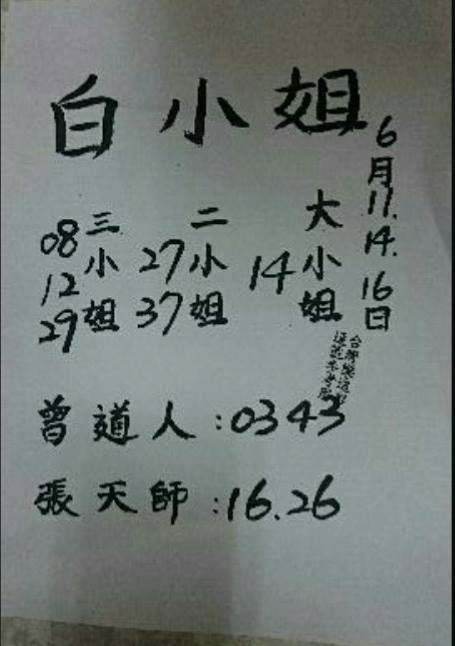 白小姐
6月11.14.16日
大小姐
14
二小姐
27
37
三小姐
08
12
29
曾道人:0343
張天師:16.26